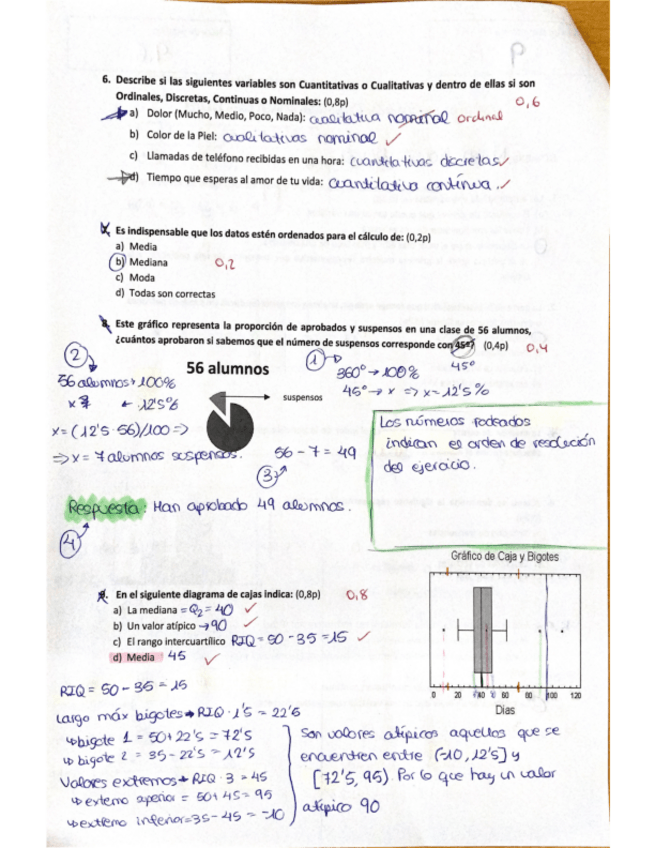 6. Describe si las siguientes variables son Cuantitativas o Cualitativas y dentro de ellas si son
Ordinales, Discretas, Continuas o Nominales: (0,8p)
0,6
a) Dolor (Mucho, Medio, Poco, Nada): cualitativa nominal ordinal
b) Color de la Piel: cualitativas nominal ✓
c) Llamadas de teléfono recibidas en una hora: cuantitativas discretas ✓
d) Tiempo que esperas al amor de tu vida: cuantitativa contínua. ✓
Es indispensable que los datos estén ordenados para el cálculo de: (0,2p)
a) Media
b) Mediana 0,2
c) Moda
d) Todas son correctas
8. Este gráfico representa la proporción de aprobados y suspensos en una clase de 56 alumnos,
¿cuántos aprobaron si sabemos que el número de suspensos corresponde con 45º? (0,4p) 0,4
45º
56 alumnos
suspensos
1
360º → 100%
45º → x => x = 12'5%
2
56 alumnos → 100%
x ← 12'5%
x = (12'5 · 56)/100 =>
=> x = 7 alumnos suspensos.
56 - 7 = 49
3
Los números rodeados
indican el orden de resolución
del ejercicio.
Respuesta: Han aprobado 49 alumnos.
4
9. En el siguiente diagrama de cajas indica: (0,8p) 0,8
a) La mediana = Q2 = 40 ✓
b) Un valor atípico → 90 ✓
c) El rango intercuartílico RIQ = 50 - 35 = 15 ✓
d) Media 45 ✓
Gráfico de Caja y Bigotes
0 20 40 60 80 100 120
Días
RIQ = 50 - 35 = 15
Largo máx bigotes → RIQ · 1'5 = 22'5
↳ bigote 1 = 50 + 22'5 = 72'5
↳ bigote 2 = 35 - 22'5 = 12'5
Valores extremos → RIQ · 3 = 45
↳ extremo superior = 50 + 45 = 95
↳ extremo inferior = 35 - 45 = -10
Son valores atípicos aquellos que se
encuentren entre (-10, 12'5] y
[72'5, 95). Por lo que hay un valor
atípico 90